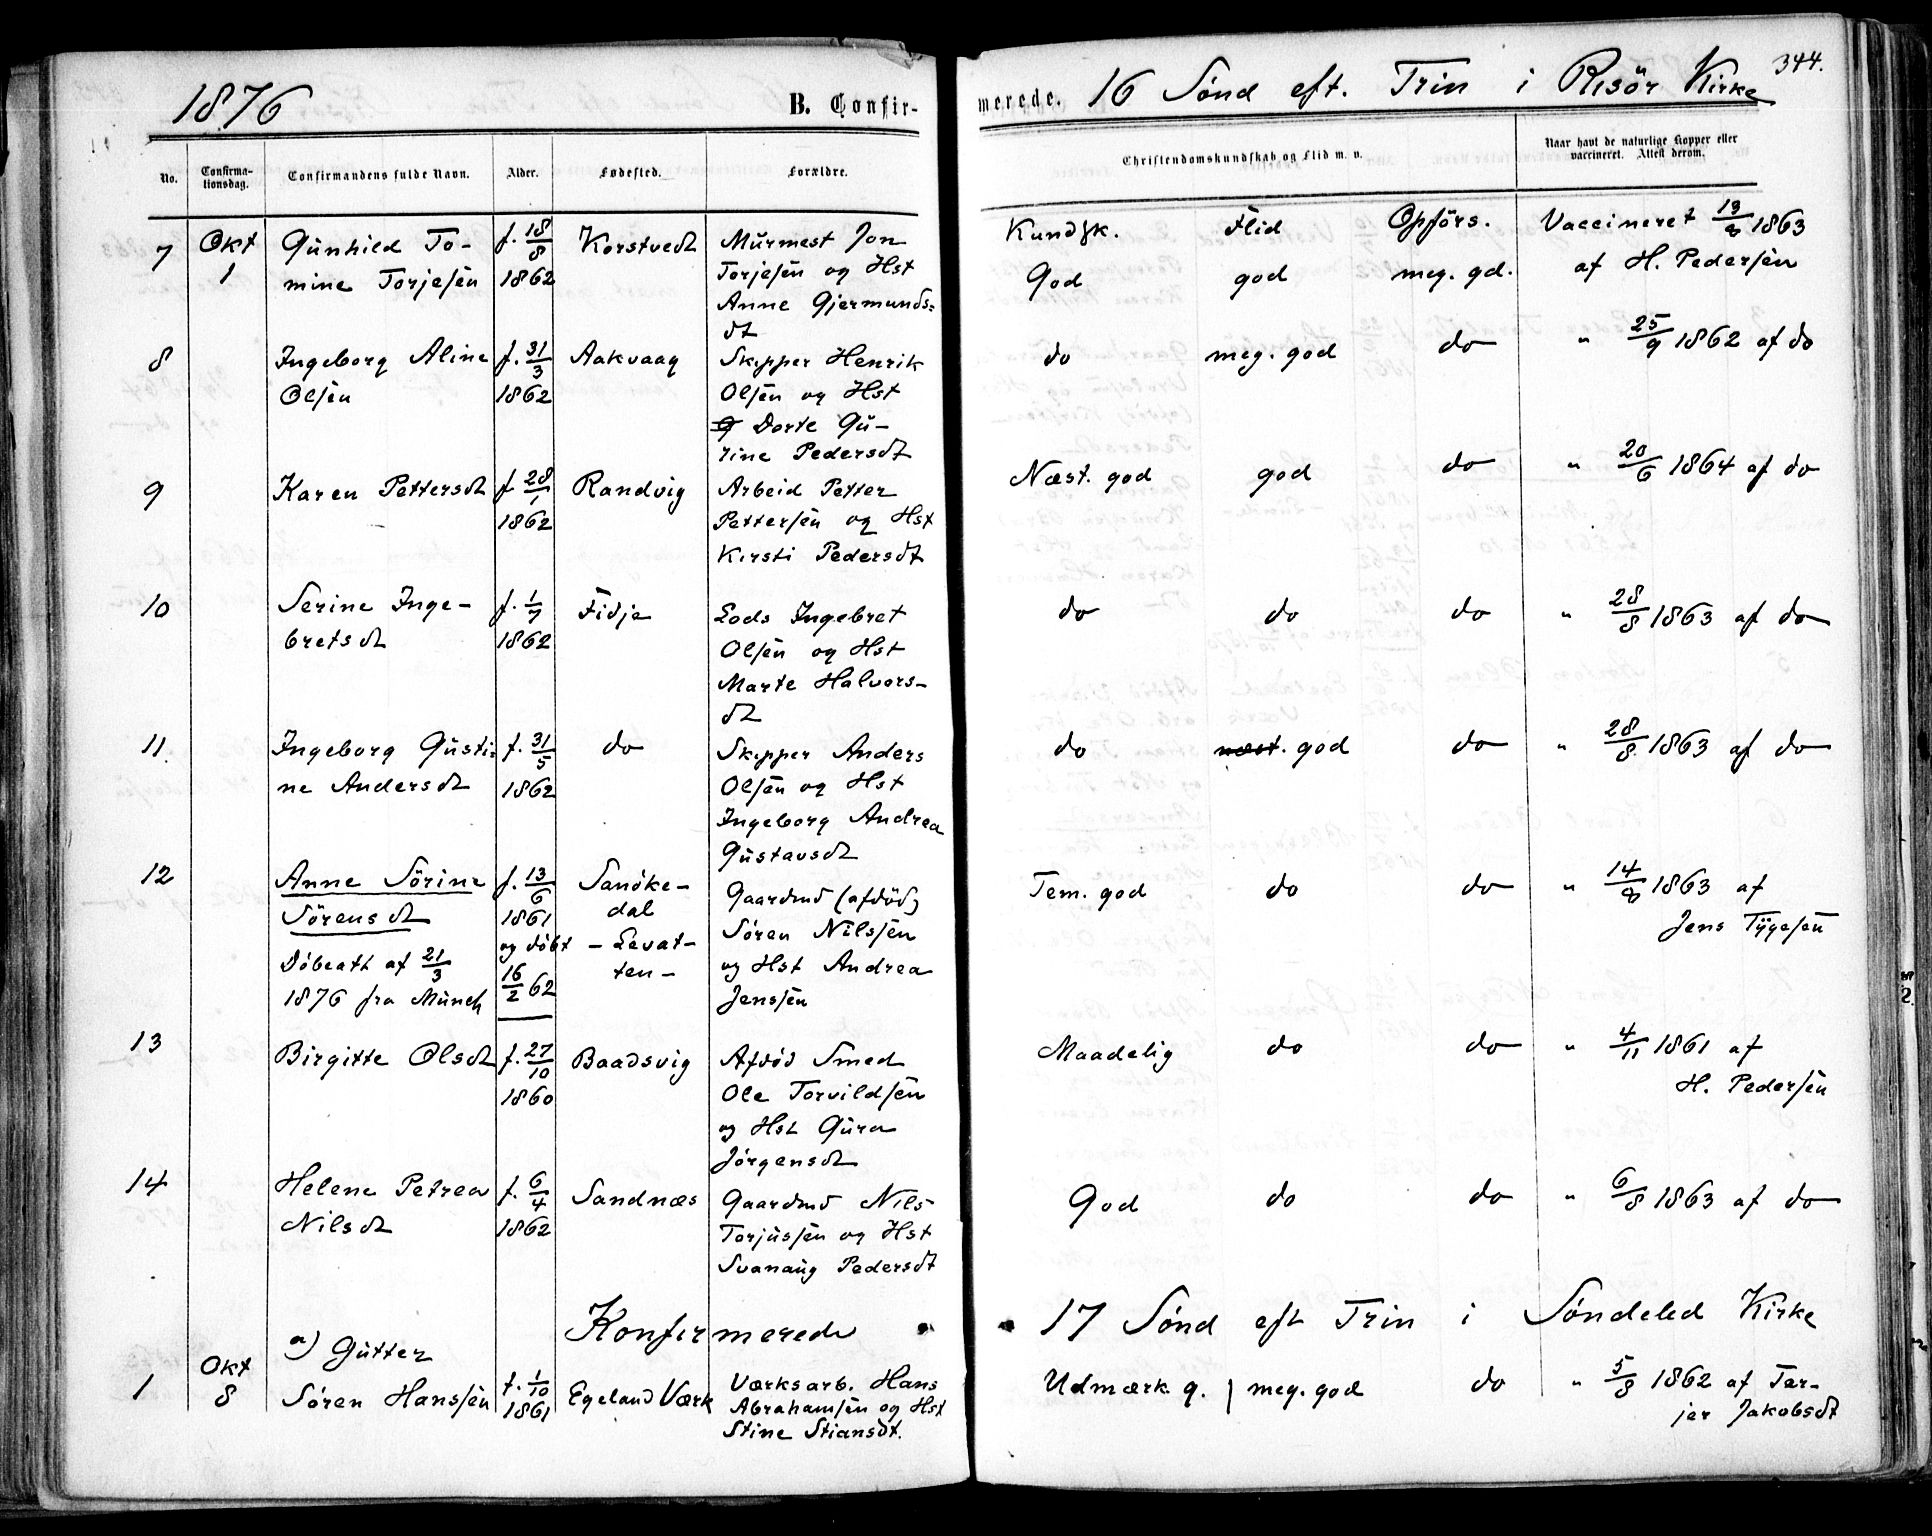 1876 B. Confir-
No. Confirma-tionsdag. Confirmandens fulde Navn. Alder. Fødested. Forældre.
7 Okt Gunhild To- f. 18/8 Korstvedt Murmest Jon
1 mine Torjesen 1862 Torjesen og Hst
Anne Gjermunds-
dt
8 Ingeborg Aline f. 31/3 Aakvaag Skipper Henrik
Olsen 1862 Olsen og Hst
Dorte Gu-
rine Pedersdt
9 Karen Pettersdt f 28/1 Randvig Arbeid Petter
1862 Pettersen og Hst
Kirsti Pedersdt
10 Serine Inge- f. 1/7 Fidje Lods Ingebret
bretsdt 1862 Olsen og Hst
Marte Halvors-
dt
11. Ingeborg Gusti- f. 31/5 do Skipper Anders
ne Andersdt 1862 Olsen og Hst
Ingeborg Andrea
Gustavsdt
12 Anne Sörine f. 13/6 Sanöke- Gaardmd (afdöd)
Sörensdt 1861 dal Sören Nilssen
Döbeatt af 21/3 og döbt - Levat- og Hst Andrea
1876 fra Munch 16/2 62 ten - Jenssen
13 Birgitte Olsdt f. 27/10 Baadsvig Afdöd Smed
1860 Ole Torvildsen
og Hst Guro
Jörgensdt
14 Helene Petrea f. 6/4 Sandnæs Gaardmd Nils
Nilsdt 1862 Torjussen og Hst
Svanaug Pedersdt
Konfirmerede
a) Gutter
Okt
1 8 Sören Hanssen f. 1/10 1861 Egeland Værk Værksarb. Hans
Abrahamsen og Hst
Stine Stiansdt.
344.
merede. 16 Sønd eft. Trin i Risör Kirke
Christendomskundskab og Flid m. v. Naar havt de naturlige Kopper eller
vaccineret. Attest derom.
Kundsk. Flid Opförs. Vaccineret 13/8 1863
God god meg. gd. af H. Pedersen
do meg. god do " 25/9 1862 af do
Næst. god god do " 20/6 1864 af do
do do do " 28/8 1863 af do
do næst. god do " 28/8 1863 af do
Tem. god do do " 14/8 1863 af
Jens Tygesen
Maadelig do do " 4/11 1861 af
H. Pedersen
God do do " 6/8 1863 af do
17 Sønd eft Trin i Søndeled Kirke
Udmærk. g. meg. god do " 5/8 1862 af Ter-
jer Jakobsdt